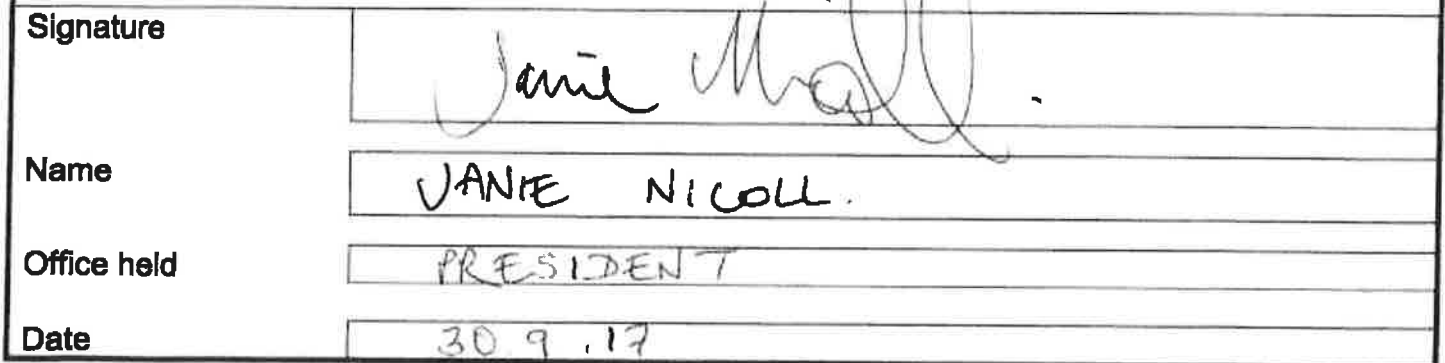 Signature
Janie Nicoll.
Name
JANIE NICOLL.
Office held
PRESIDENT
Date
30 9 .17